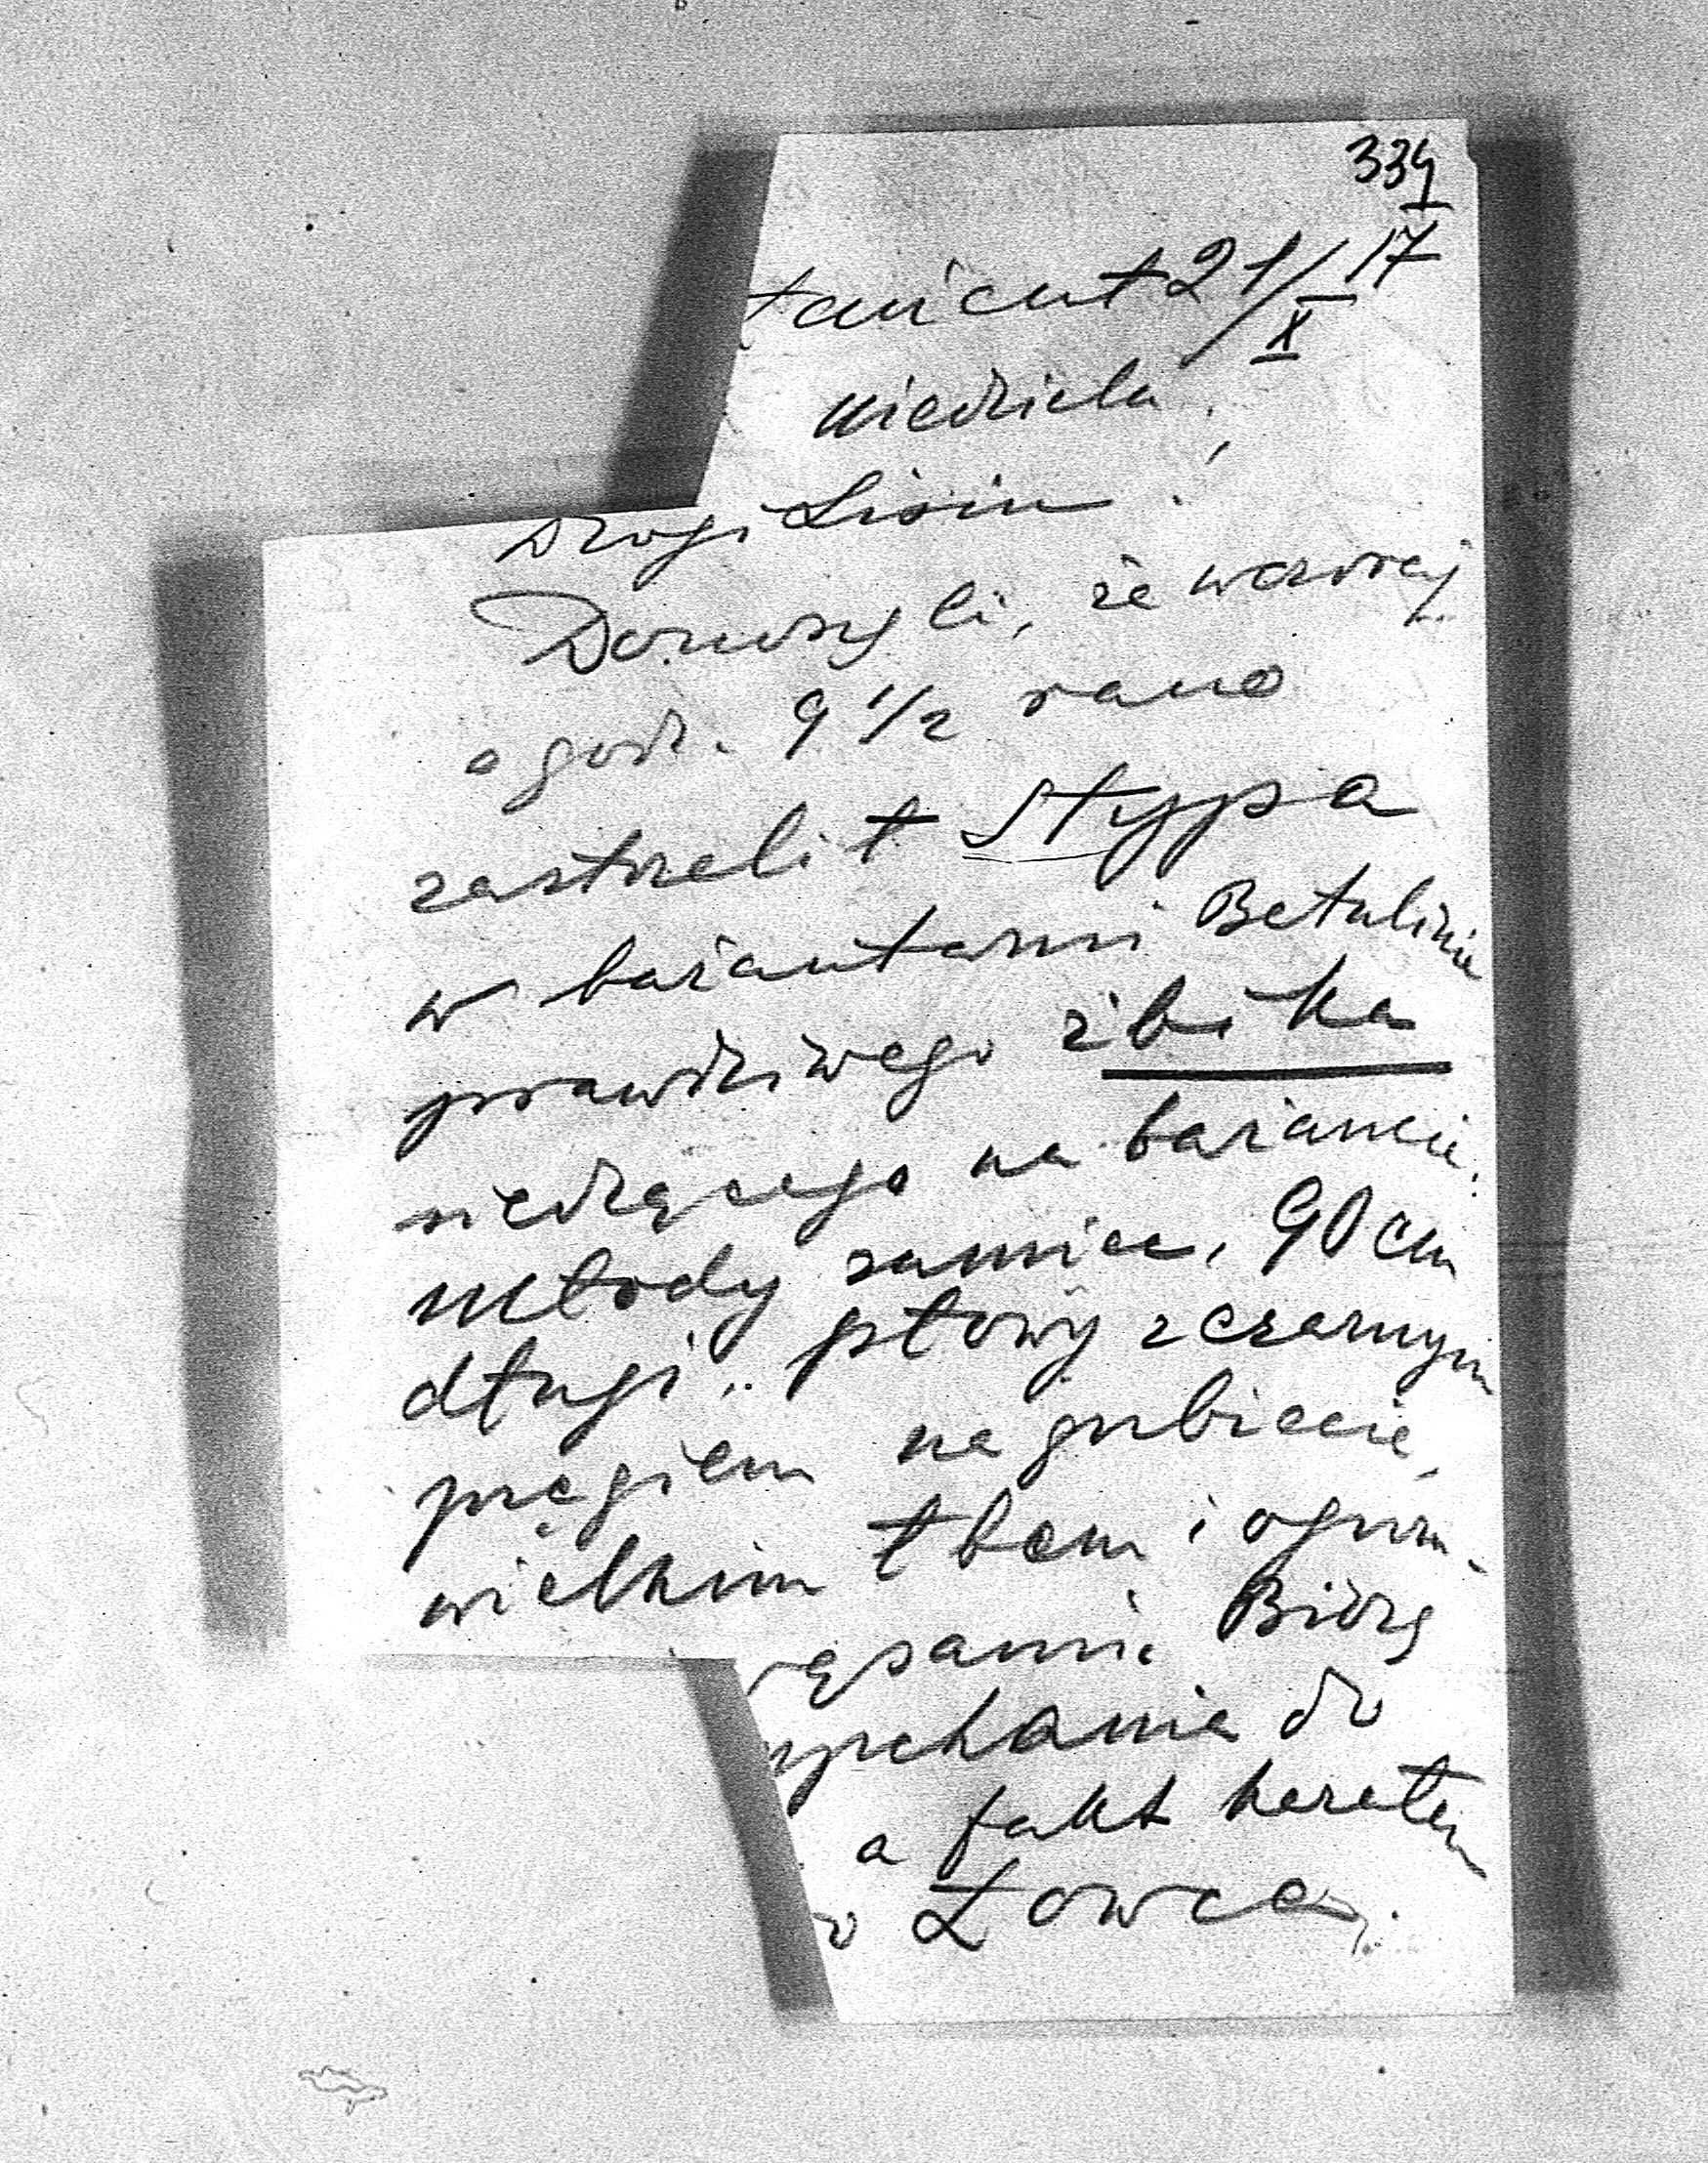 334
Łańcut 21/X 17
niedziela,
Drogi Lisiu!
Donoszę Ci, że wczoraj
o godz. 9 1/2 rano
zastrzelił Stypa
w bażantarni Betulinie
prawdziwego żbika
siedzącego na bażancie.
młody samiec, 90 cm
długi, płowy z czarnym
pręgiem na grzbiecie,
wielkim łbem i ogrom.
wąsami. Biorę
wypchania do
a fakt
Łowca.